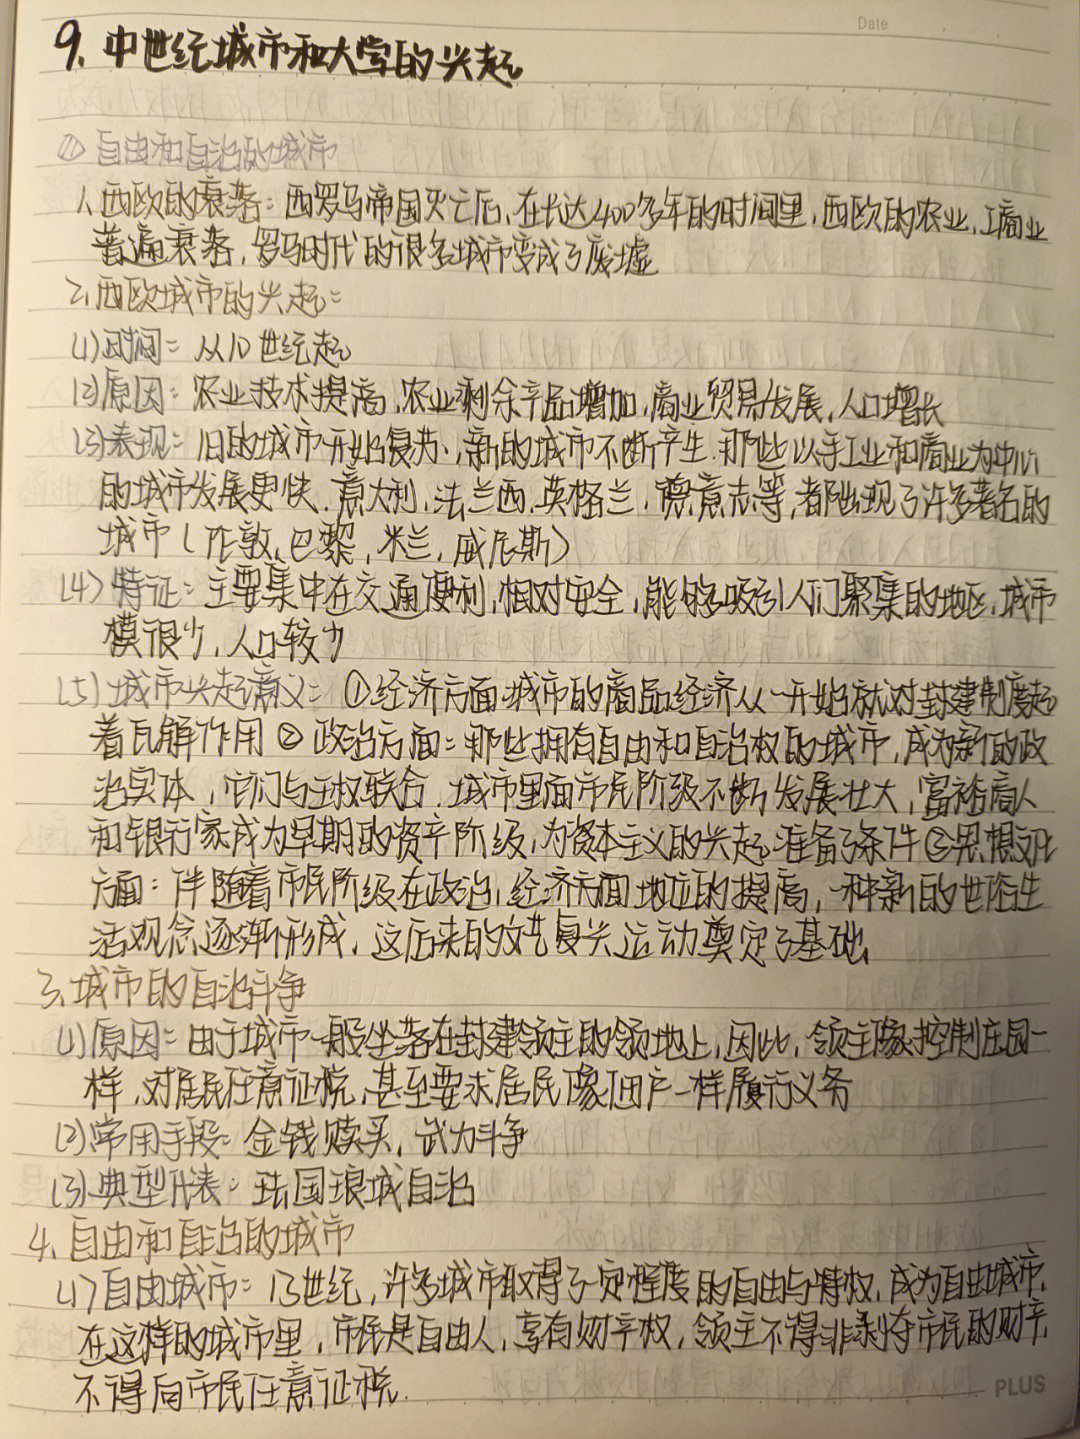 Date
9. 中世纪城市和大学的兴起
(1) 自由和自治的城市
1. 西欧的衰落：西罗马帝国灭亡后，在长达400多年的时间里，西欧的农业、工商业
普遍衰落，罗马时代的很多城市变成了废墟
2. 西欧城市的兴起：
(1) 时间：从10世纪起
(2) 原因：农业技术提高，农业剩余产品增加，商业贸易发展，人口增长
(3) 表现：旧的城市开始复苏，新的城市不断产生，那些以手工业和商业为中心
的城市发展更快，意大利，法兰西，英格兰，德意志等，都出现了许多著名的
城市（伦敦，巴黎，米兰，威尼斯）
(4) 特征：主要集中在交通便利，相对安全，能够吸引人们聚集的地区，城市
模很少，人口较少
(5) 城市兴起意义：①经济方面：城市的商品经济从一开始就对封建制度起
着瓦解作用 ② 政治方面：那些拥有自由和自治权的城市，成为新的政
治实体，它们与王权联合，城市里面市民阶级不断发展壮大，富裕商人
和银行家成为早期的资产阶级，为资本主义的兴起准备了条件 ③思想文化
方面：伴随着市民阶级在政治，经济方面地位的提高，一种新的世俗生
活观念逐渐形成，这后来的文艺复兴运动奠定了基础
3. 城市的自治斗争
(1) 原因：由于城市一般坐落在封建领主的领地上，因此，领主像控制庄园一
样，对居民任意征税，甚至要求居民像佃户一样履行义务
(2) 常用手段：金钱赎买，武力斗争
(3) 典型代表：法国琅城自治
4. 自由和自治的城市
(1) 自由城市：13世纪，许多城市取得了一定程度的自由与特权，成为自由城市，
在这样的城市里，市民是自由人，享有财产权，领主不得非剥夺市民的财产，
不得向市民任意征税．
PLUS